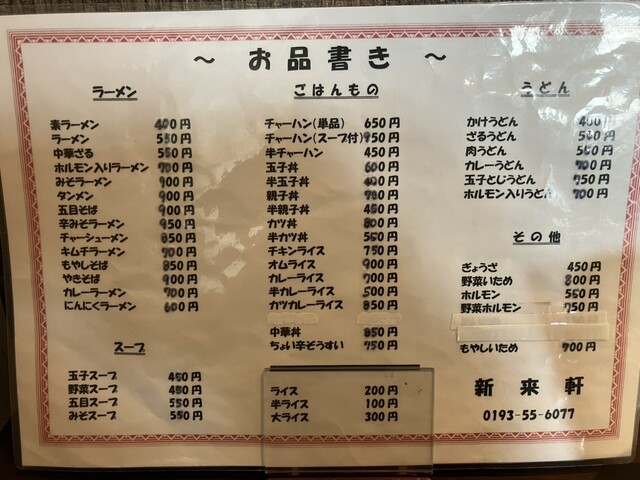 ～ お品書き ～
ラーメン
素ラーメン 400円
ラーメン 550円
中華ざる 550円
ホルモン入りラーメン 700円
みそラーメン 900円
タンメン 900円
五目そば 900円
辛みそラーメン 950円
チャーシューメン 850円
キムチラーメン 700円
もやしそば 850円
やきそば 900円
カレーラーメン 700円
にんにくラーメン 600円
スープ
玉子スープ 450円
野菜スープ 450円
五目スープ 550円
みそスープ 550円
ごはんもの
チャーハン(単品) 650円
チャーハン(スープ付) 950円
半チャーハン 450円
玉子丼 600円
半玉子丼 400円
親子丼 780円
半親子丼 450円
カツ丼 800円
半カツ丼 550円
チキンライス 750円
オムライス 900円
カレーライス 700円
半カレーライス 500円
カツカレーライス 850円
中華丼 850円
ちょい辛ぞうすい 750円
ライス 200円
半ライス 100円
大ライス 300円
うどん
かけうどん 400円
ざるうどん 500円
肉うどん 550円
カレーうどん 700円
玉子とじうどん 750円
ホルモン入りうどん 700円
その他
ぎょうざ 450円
野菜いため 800円
ホルモン 550円
野菜ホルモン 750円
もやしいため 700円
新来軒
0193-55-6077